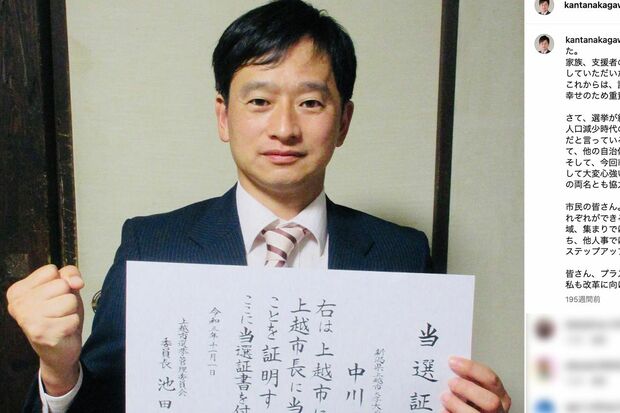 当選証
中川
右は上越市に
上越市長に当
ことを証明す
ここに当選証書を付
令和三年十一月一日
上越市選挙管理委員会
委員長 池田
kantanakagaw
kantanakagaw
た。
家族、支援者の
していただい
これからは、
幸せのため重
さて、選挙が
人口減少時代の
だと言っている
て、他の自治
そして、今回
して大変心強い
の両名とも協
市民の皆さん。
れぞれができ
域、集まりでは
ち、他人事では
ステップアップ
皆さん、プラ
私も改革に向
195週間前